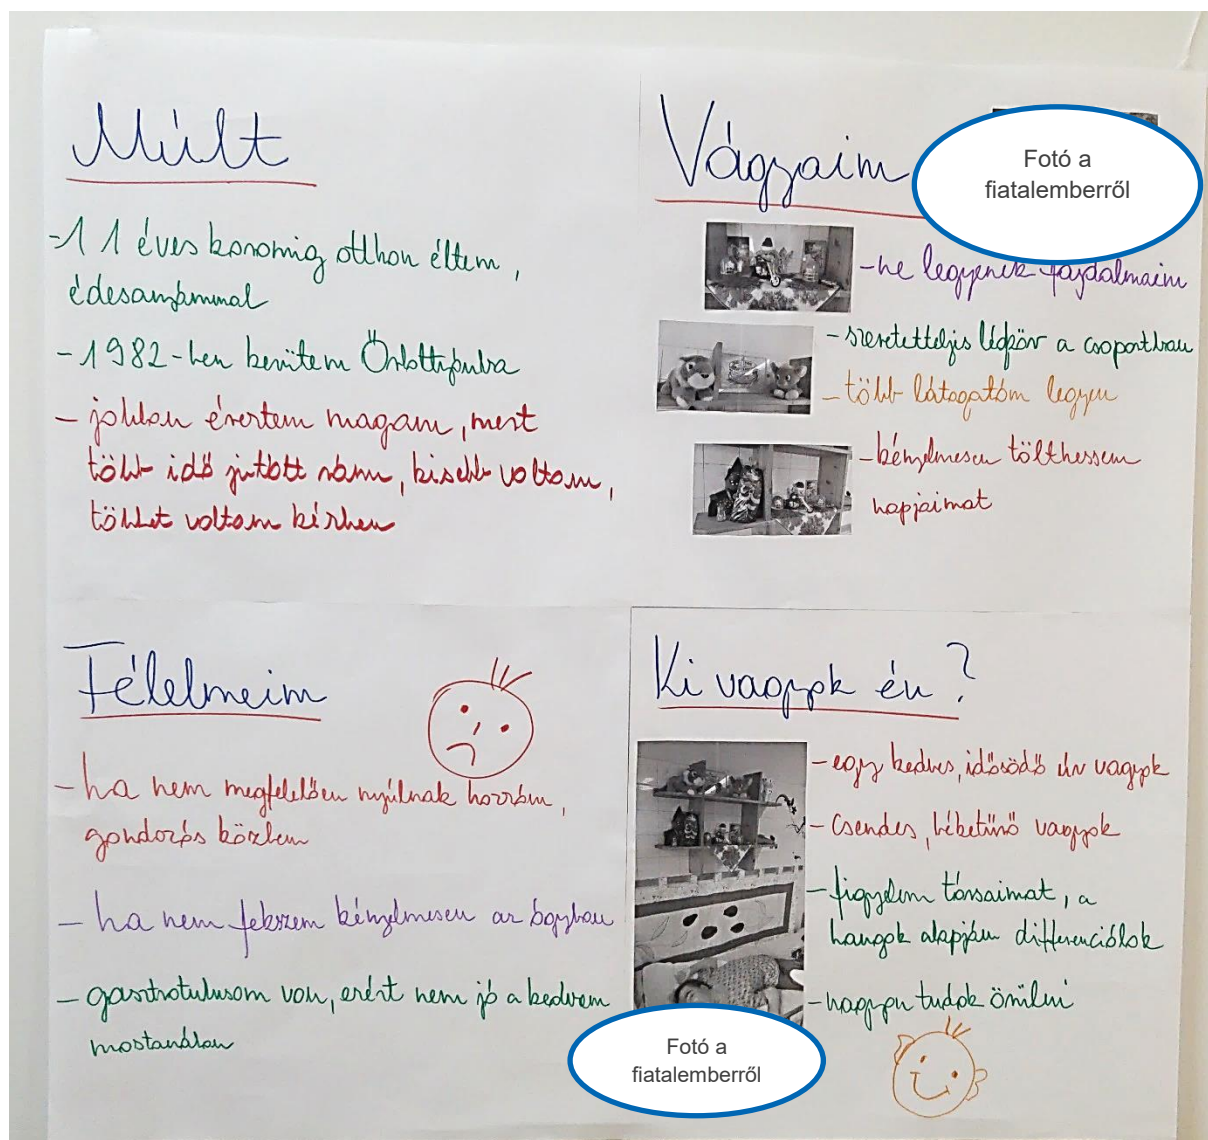 Múlt
- 11 éves koromig otthon éltem,
édesanyámmal
- 1982-ben kerültem Örbottyánba
- jobban éreztem magam, mert
több idő jutott rám, kisebb voltam,
többet voltam kézben
Vágyaim
Fotó a
fiatalemberről
- ne legyenek fájdalmaim
- szeretetteljes légkör a csoportban
- több látogatóm legyen
- kényelmesen tölthessem
napjaimat
Félelmeim
- ha nem megfelelően nyúlnak hozzám,
gondozás közben
- ha nem fekszem kényelmesen az ágyban
- gastrotubusom van, ezért nem jó a kedvem
mostanában
Ki vagyok én?
- egy kedves, idősödő úr vagyok
- csendes, béketűrő vagyok
- figyelem társaimat, a
hangok alapján differenciálok
- nagyon tudok örülni
Fotó a
fiatalemberről